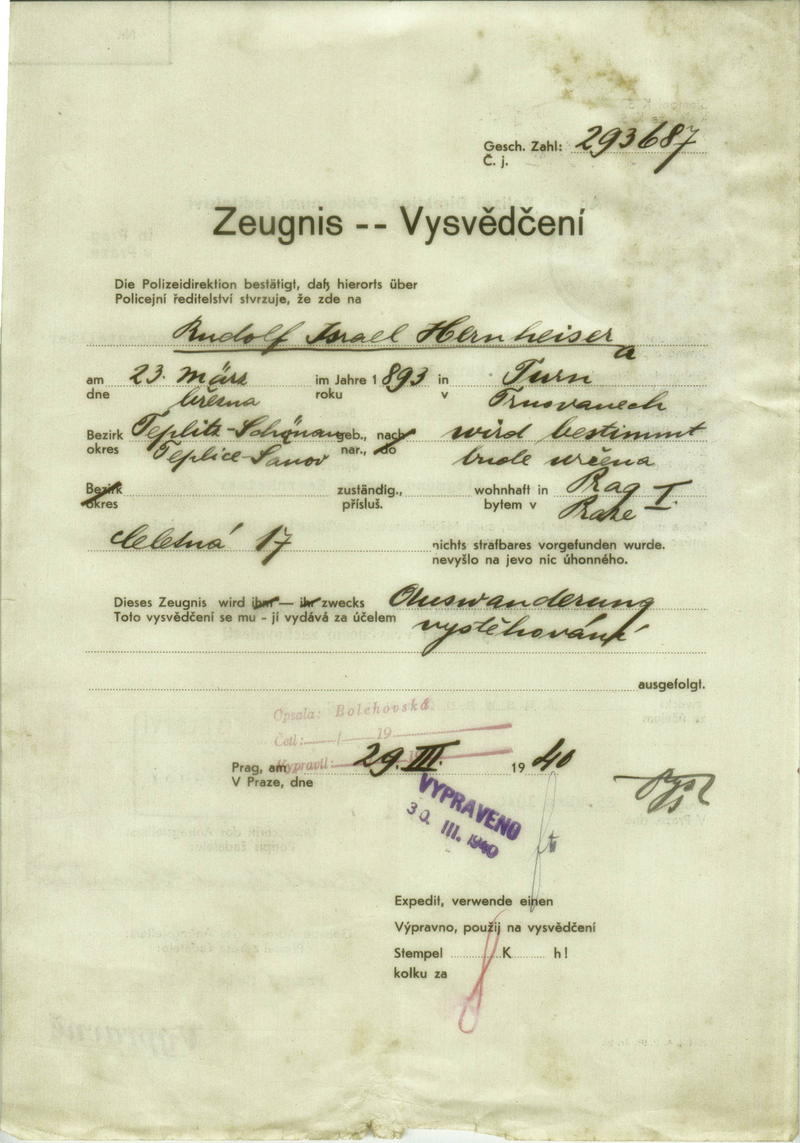 Gesch. Zahl: 293687
Č. j.
Zeugnis -- Vysvědčení
Die Polizeidirektion bestätigt, daß hierorts über
Policejní ředitelství stvrzuje, že zde na
Rudolf Israel Hernheiser
a
am 23. März im Jahre 1893 in Turn
dne března roku v Trnovanech
Bezirk Teplitz-Schönau geb., nach wird bestimmt
okres Teplice-Šanov nar., do bude určena
Bezirk zuständig., wohnhaft in Prag I.
okres přísluš. bytem v Praze
Celetná 17 nichts strafbares vorgefunden wurde.
nevyšlo na jevo nic úhonného.
Dieses Zeugnis wird ihm — ihr zwecks Auswanderung
Toto vysvědčení se mu - jí vydává za účelem vystěhování
ausgefolgt.
Opsala: Bolehovská
Četl: / 19
Vypravil:
Prag, am 29. III. 1940
V Praze, dne
VYPRAVENO
30. III. 1940
Expedit, verwende einen
Výpravno, použij na vysvědčení
Stempel K h!
kolku za